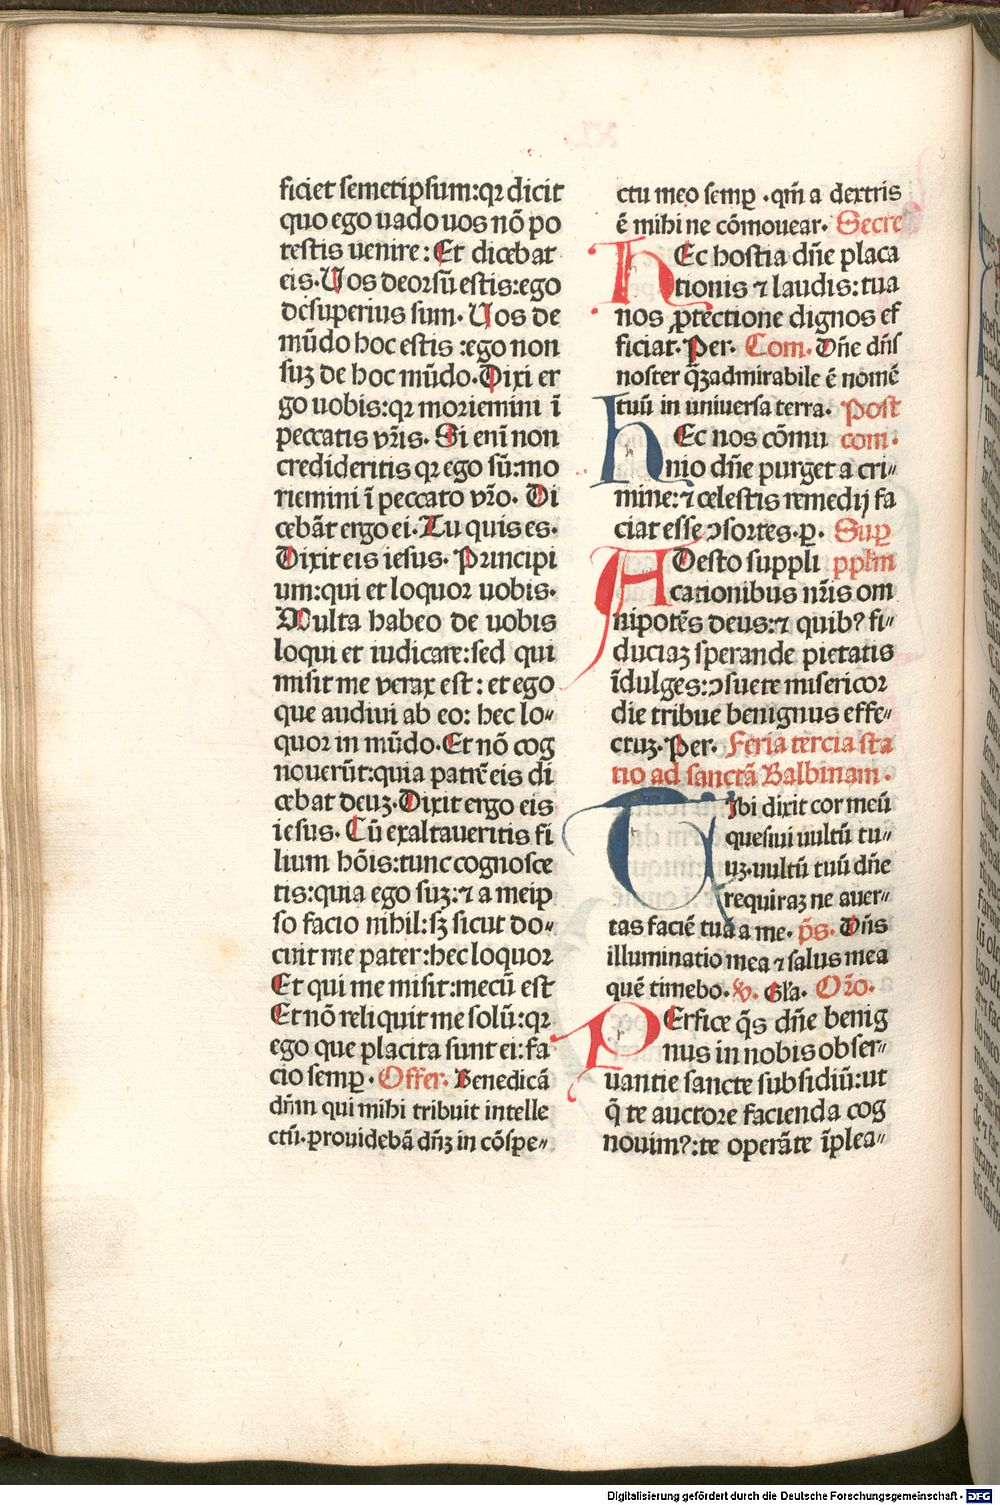 ficiet semetipsum:qꝛ dicit
quo ego uado uos nō po
testis uenire: Et dicebat
eis. Vos deorsū estis:ego
desuperius sum. Vos de
mūdo hoc estis :ego non
suꝫ de hoc mūdo. Dixi er
go uobis:qꝛ moriemini ī
peccatis vr̄is. Si eni non
credideritis qꝛ ego sū:mo
riemini ī peccato vr̄o. Di
cebāt ergo ei. Tu quis es.
Dixit eis iesus. Principi
um:qui et loquor uobis.
Multa habeo de uobis
loqui et iudicare:sed qui
misit me verax est : et ego
que audiui ab eo: hec lo〃
quor in mūdo. Et nō cog
nouerūt:quia patrē eis di
cebat deuꝫ. Dixit ergo eis
iesus. Cū exaltaueritis fi
lium hōis:tunc cognosce
tis:quia ego suꝫ:⁊ a meip
so facio nihil:sꝫ sicut do〃
cuit me pater:hec loquor
Et qui me misit:mecū est
Et nō reliquit me solū:qꝛ
ego que placita sunt ei: fa
cio semꝑ. Offer. Benedicā
dn̄m qui mihi tribuit intelle
ctū.prouidebā dn̄ꝫ in cōspe〃
ctu meo semꝑ .qm̄ a dextris
ē mihi ne cōmouear. Secre
hEc hostia dn̄e placa
tionis ⁊ laudis: tua
nos ꝓtectione dignos ef
ficiat. Per. Com. Dn̄e dn̄s
noster q̄ꝫadmirabile ē nomē
tuū in uniuersa terra. Post
hEc nos cōmu com.
nio dn̄e purget a cri〃
mine:⁊ celestis remedij fa
ciat esse ↄsortes.ꝑ. Suꝑ
ADesto suppli pplm̄
cationibus nr̄is om
nipotēs deus:⁊ quibꝰ fi〃
duciaꝫ sperande pietatis
īdulges:ↄsuete misericor
die tribue benignus effe〃
ctuꝫ. Per. Feria tercia sta
tio ad sanctā Balbinam.
TIbi dixit cor meū
quesiui uultū tu〃
uꝫ.uultū tuū dn̄e
requiraꝫ ne auer〃
tas faciē tuā a me. ps̄. Dn̄s
illuminatio mea ⁊ salus mea
quē timebo. ℣. Gl̄a. Or̄o.
PErfice q̄s dn̄e benig
nus in nobis obser〃
uantie sancte subsidiū:ut
q̄ te auctore facienda cog
nouimꝰ:te operāte īplea〃
Digitalisierung gefördert durch die Deutsche Forschungsgemeinschaft - DFG